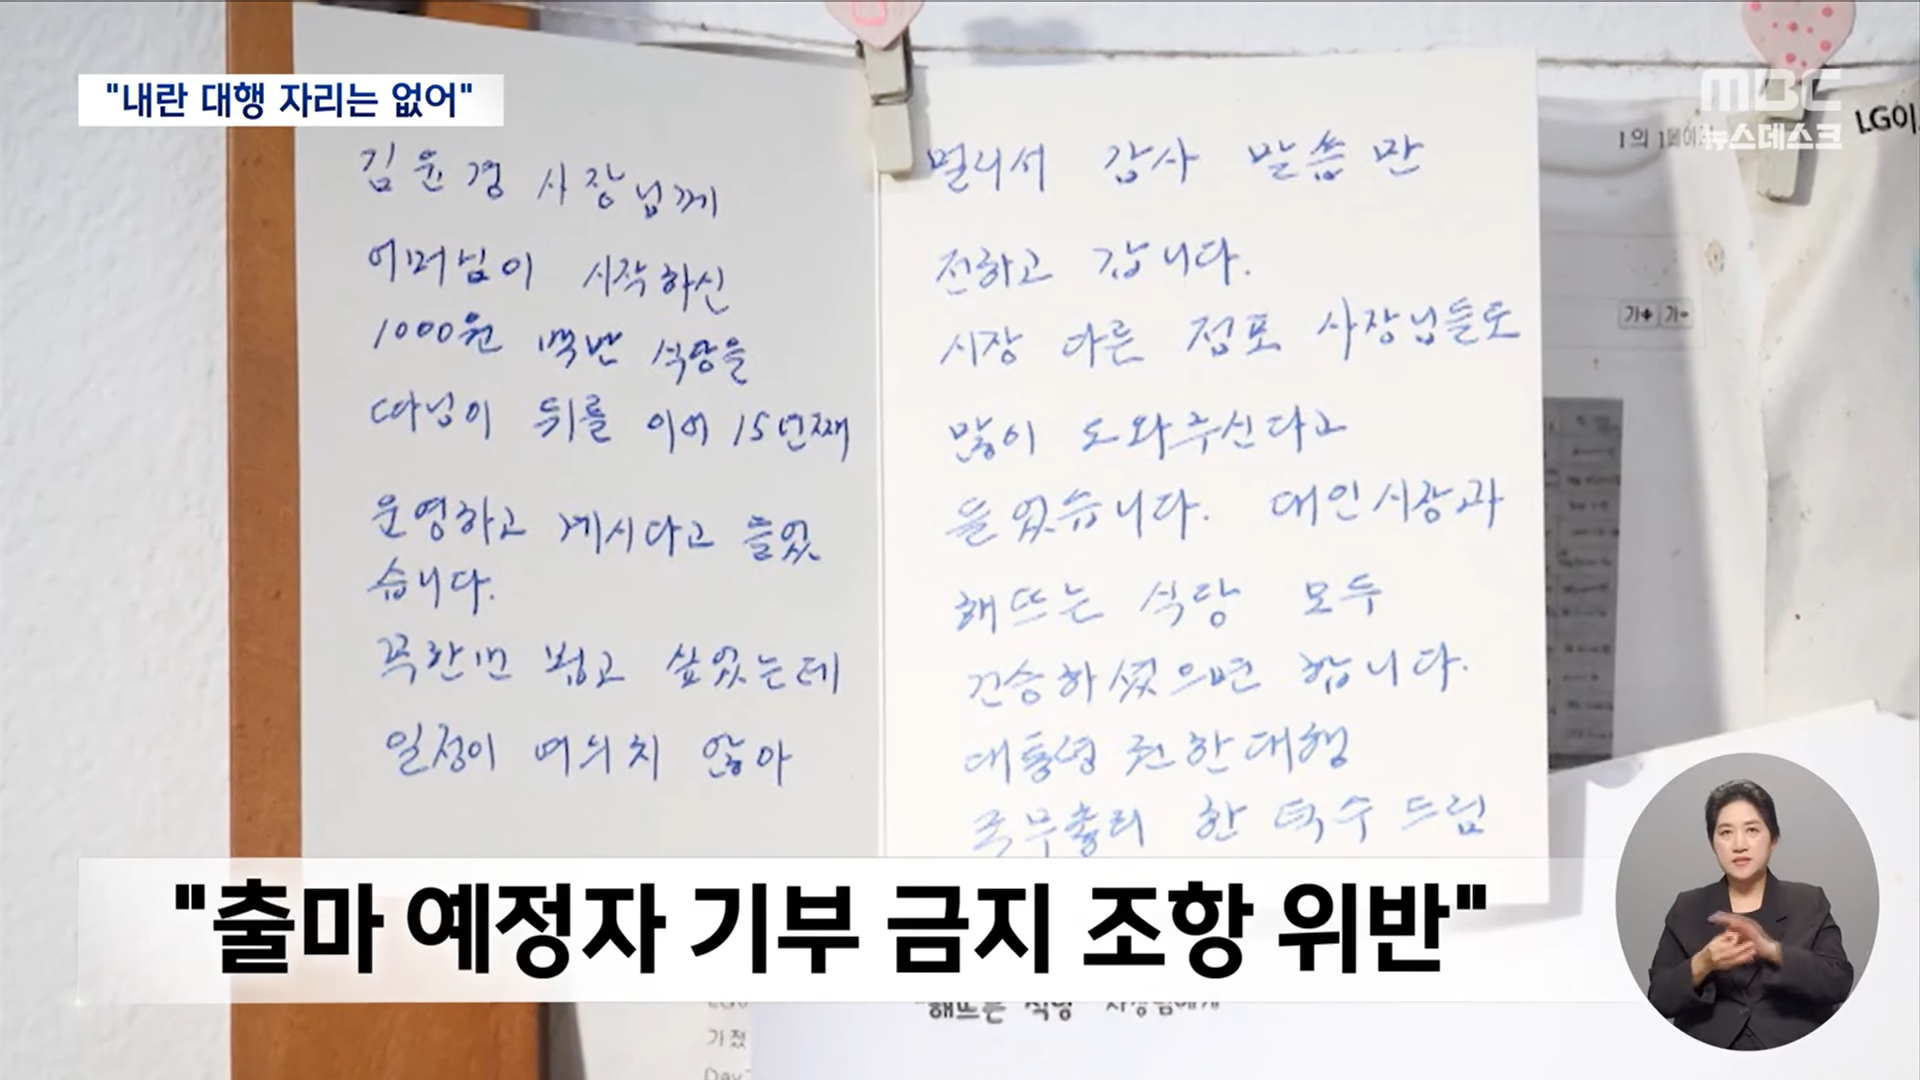 "내란 대행 자리는 없어"
MBC
뉴스데스크
LG이
1의 1페이지
가+ 가-
김윤경 사장님께
어머님이 시작하신
1000원 백반 식당을
따님이 뒤를 이어 15년째
운영하고 계시다고 들었
습니다.
꼭 한번 뵙고 싶었는데
일정이 여의치 않아
멀리서 감사 말씀만
전하고 갑니다.
시장 다른 점포 사장님들도
많이 도와주신다고
들었습니다. 대인시장과
해뜨는 식당 모두
건승하셨으면 합니다.
대통령 권한대행
국무총리 한덕수 드림
"출마 예정자 기부 금지 조항 위반"
"해뜨는 식당 사장님에게
가졌
Day